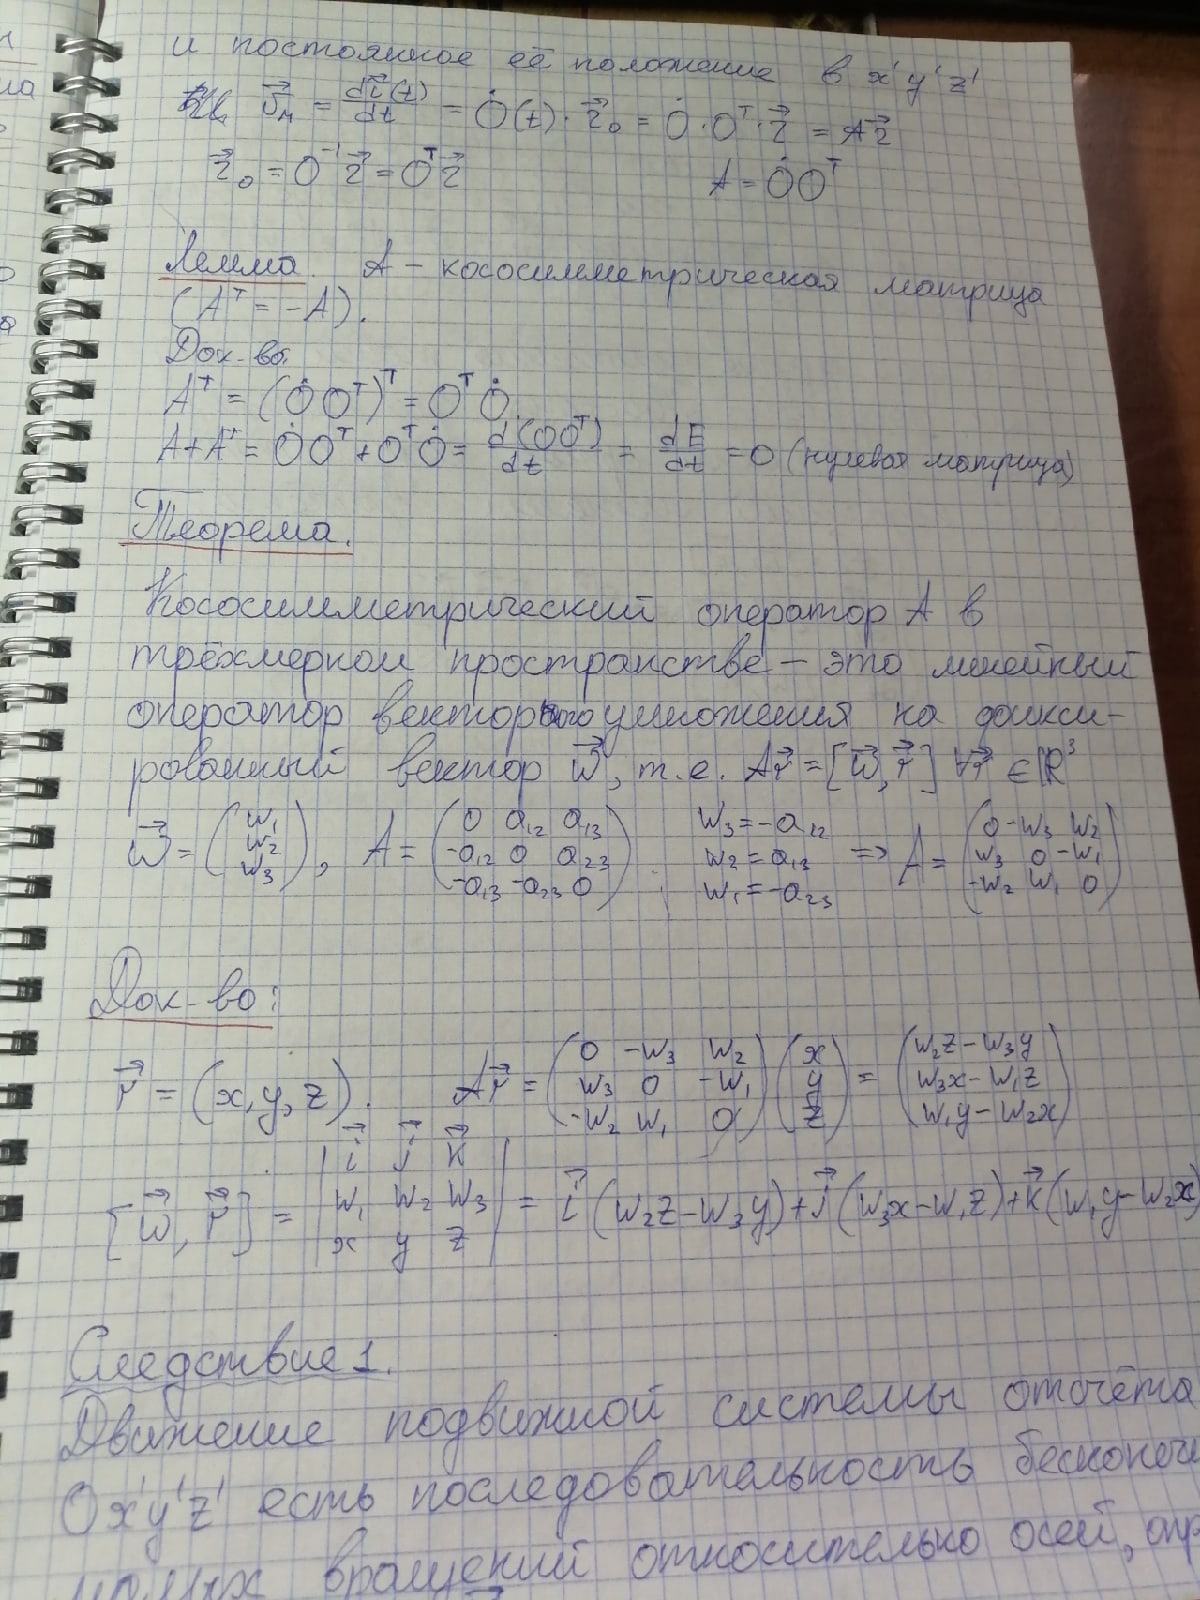 и постоянное её положение в x'y'z'
v⃗м = dr⃗(t)/dt = Ȯ(t)·r⃗₀ = Ȯ·Oᵀ·r⃗ = Ar⃗
r⃗₀ = O⁻¹r⃗ = Oᵀr⃗ A = ȮOᵀ
Лемма. A – кососимметрическая матрица
(Aᵀ = -A).
Док-во.
Aᵀ = (ȮOᵀ)ᵀ = OᵀȮ
A+Aᵀ = ȮOᵀ + OᵀȮ = d(OOᵀ)/dt = dE/dt = 0 (нулевая матрица)
Теорема.
Кососимметрический оператор A в
трёхмерном пространстве – это линейный
оператор векторного умножения на фикси-
рованный вектор w⃗, т.е. Ar⃗ = [w⃗, r⃗] ∀r⃗ ∈ ℝ³
w⃗ = (w₁ w₂ w₃), A = (0 a₁₂ a₁₃ -a₁₂ 0 a₂₃ -a₁₃ -a₂₃ 0) w₃ = -a₁₂ w₂ = a₁₃ w₁ = -a₂₃ => A = (0 -w₃ w₂ w₃ 0 -w₁ -w₂ w₁ 0)
Док-во:
r⃗ = (x, y, z). Ar⃗ = (0 -w₃ w₂ w₃ 0 -w₁ -w₂ w₁ 0)(x y z) = (w₂z - w₃y w₃x - w₁z w₁y - w₂x)
[w⃗, r⃗] = |i⃗ j⃗ k⃗ w₁ w₂ w₃ x y z| = i⃗(w₂z-w₃y)+j⃗(w₃x-w₁z)+k⃗(w₁y-w₂x)
Следствие 1.
Движение подвижной системы отсчёта
Ox'y'z' есть последовательность бесконечн
малых вращений относительно осей, опр